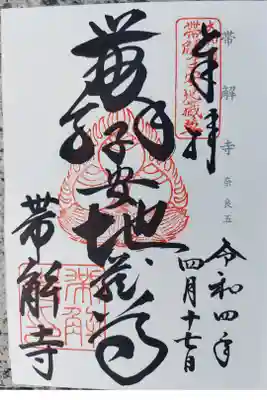 奉拝
帯解寺
奈良五
令和四年
四月十七日
帯解子安地蔵尊
帯解寺